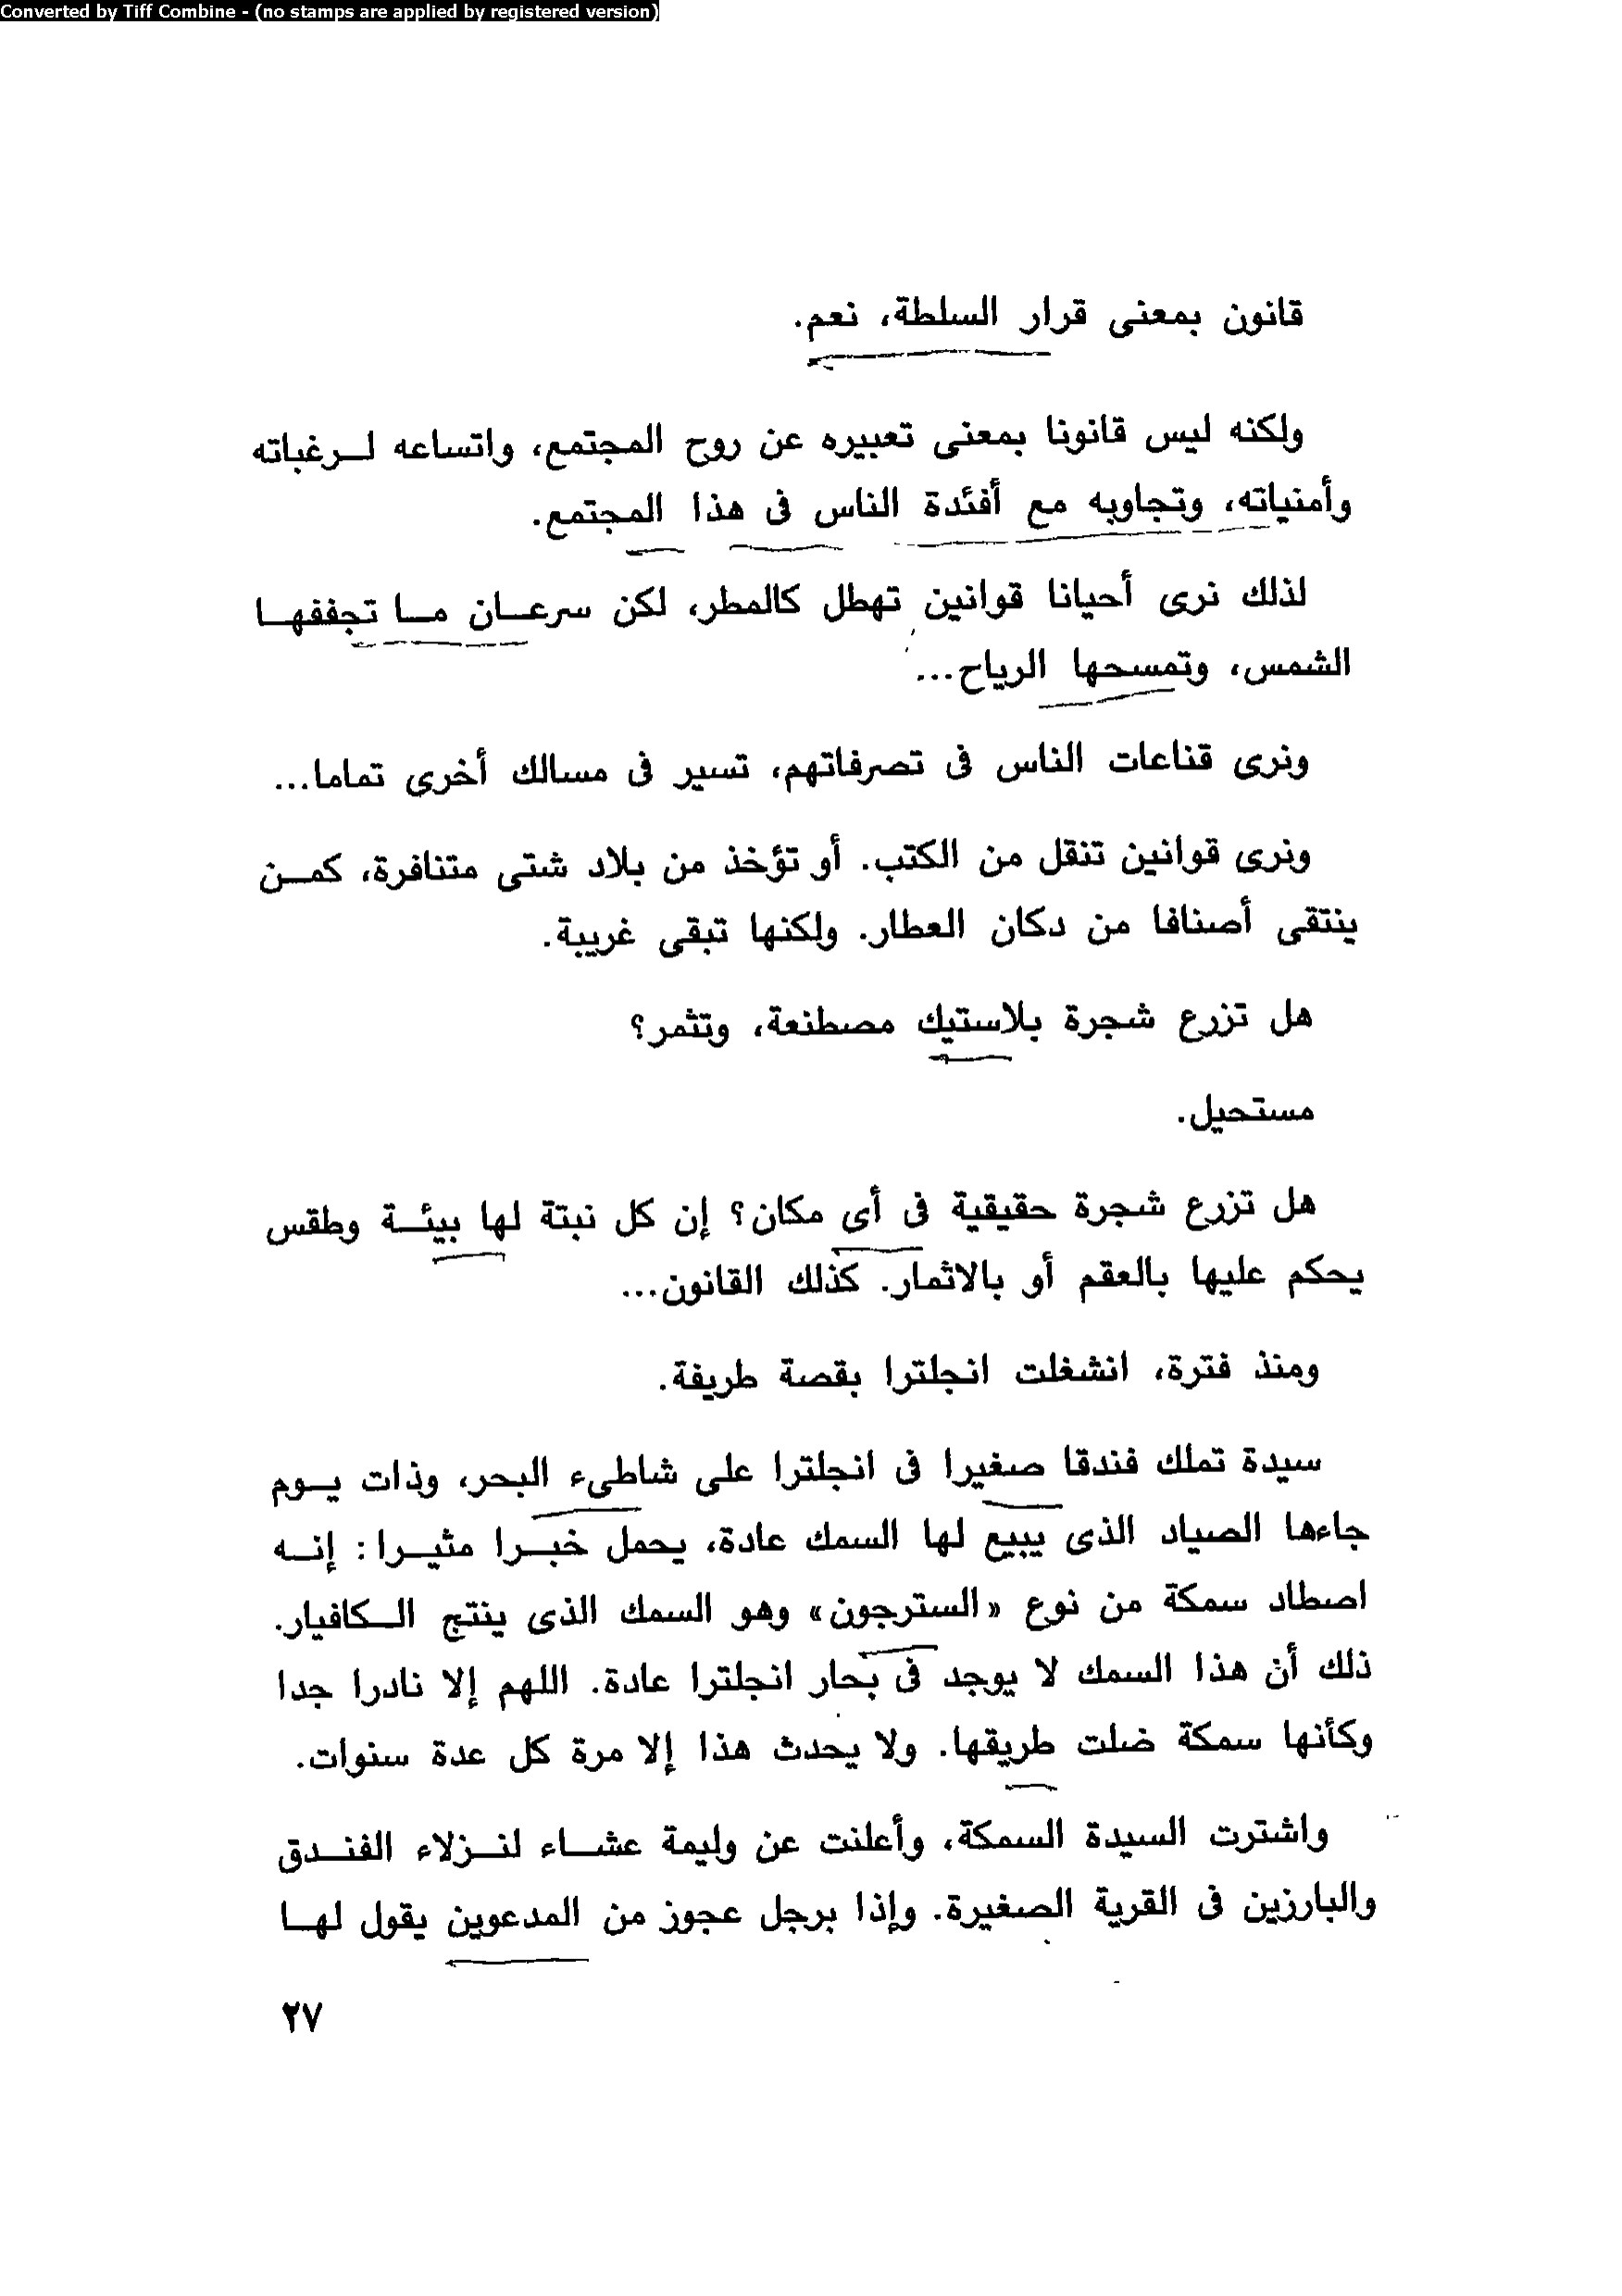 Converted by Tiff Combine - (no stamps are applied by registered version)
قانون بمعنى قرار السلطة، نعم.
ولكنه ليس قانونا بمعنى تعبيره عن روح المجتمع، واتساعه لرغباته
وأمنياته، وتجاوبه مع أفئدة الناس فى هذا المجتمع.
لذلك نرى أحيانا قوانين تهطل كالمطر، لكن سرعان ما تجففها
الشمس، وتمسحها الرياح...
ونرى قناعات الناس فى تصرفاتهم، تسير فى مسالك أخرى تماما...
ونرى قوانين تنقل من الكتب. أو تؤخذ من بلاد شتى متنافرة، كمن
ينتقى أصنافا من دكان العطار. ولكنها تبقى غريبة.
هل تزرع شجرة بلاستيك مصطنعة، وتثمر؟
مستحيل.
هل تزرع شجرة حقيقية فى أى مكان؟ إن كل نبتة لها بيئة وطقس
يحكم عليها بالعقم أو بالاثمار. كذلك القانون...
ومنذ فترة، انشغلت انجلترا بقصة طريفة.
سيدة تملك فندقا صغيرا فى انجلترا على شاطىء البحر، وذات يوم
جاءها الصياد الذى يبيع لها السمك عادة، يحمل خبرا مثيرا : إنه
اصطاد سمكة من نوع «السترجون» وهو السمك الذى ينتج الكافيار.
ذلك أن هذا السمك لا يوجد فى بحار انجلترا عادة. اللهم إلا نادرا جدا
وكأنها سمكة ضلت طريقها. ولا يحدث هذا إلا مرة كل عدة سنوات.
واشترت السيدة السمكة، وأعلنت عن وليمة عشاء لنزلاء الفندق
والبارزين فى القرية الصغيرة. وإذا برجل عجوز من المدعوين يقول لها
٢٧